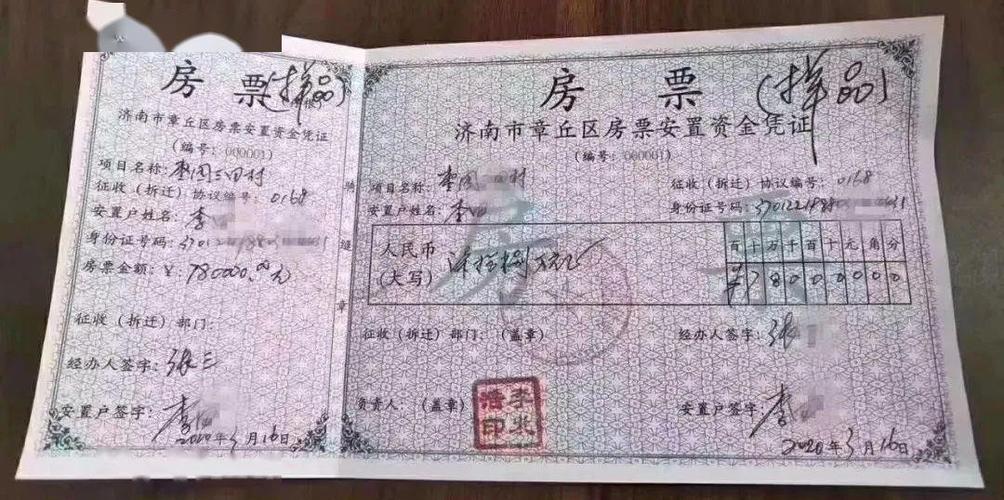 房 票(样品)
济南市章丘区房票安置资金凭证
(编号:000001)
项目名称:
征收(拆迁)协议编号:0168
安置户姓名:李
身份证号码:
房票金额:¥:780000.00元
征收(拆迁)部门:
经办人签字:张三
安置户签字:李
2020年3月16日
骑缝章
房 票 (样品)
济南市章丘区房票安置资金凭证
(编号:000001)
项目名称:
征收(拆迁)协议编号:0168
安置户姓名:李
身份证号码:
人民币
(大写)
百十万千百十元角分
¥78000000
征收(拆迁)部门:(盖章)
经办人签字:张
负责人:(盖章)
安置户签字:李
2020年3月16日